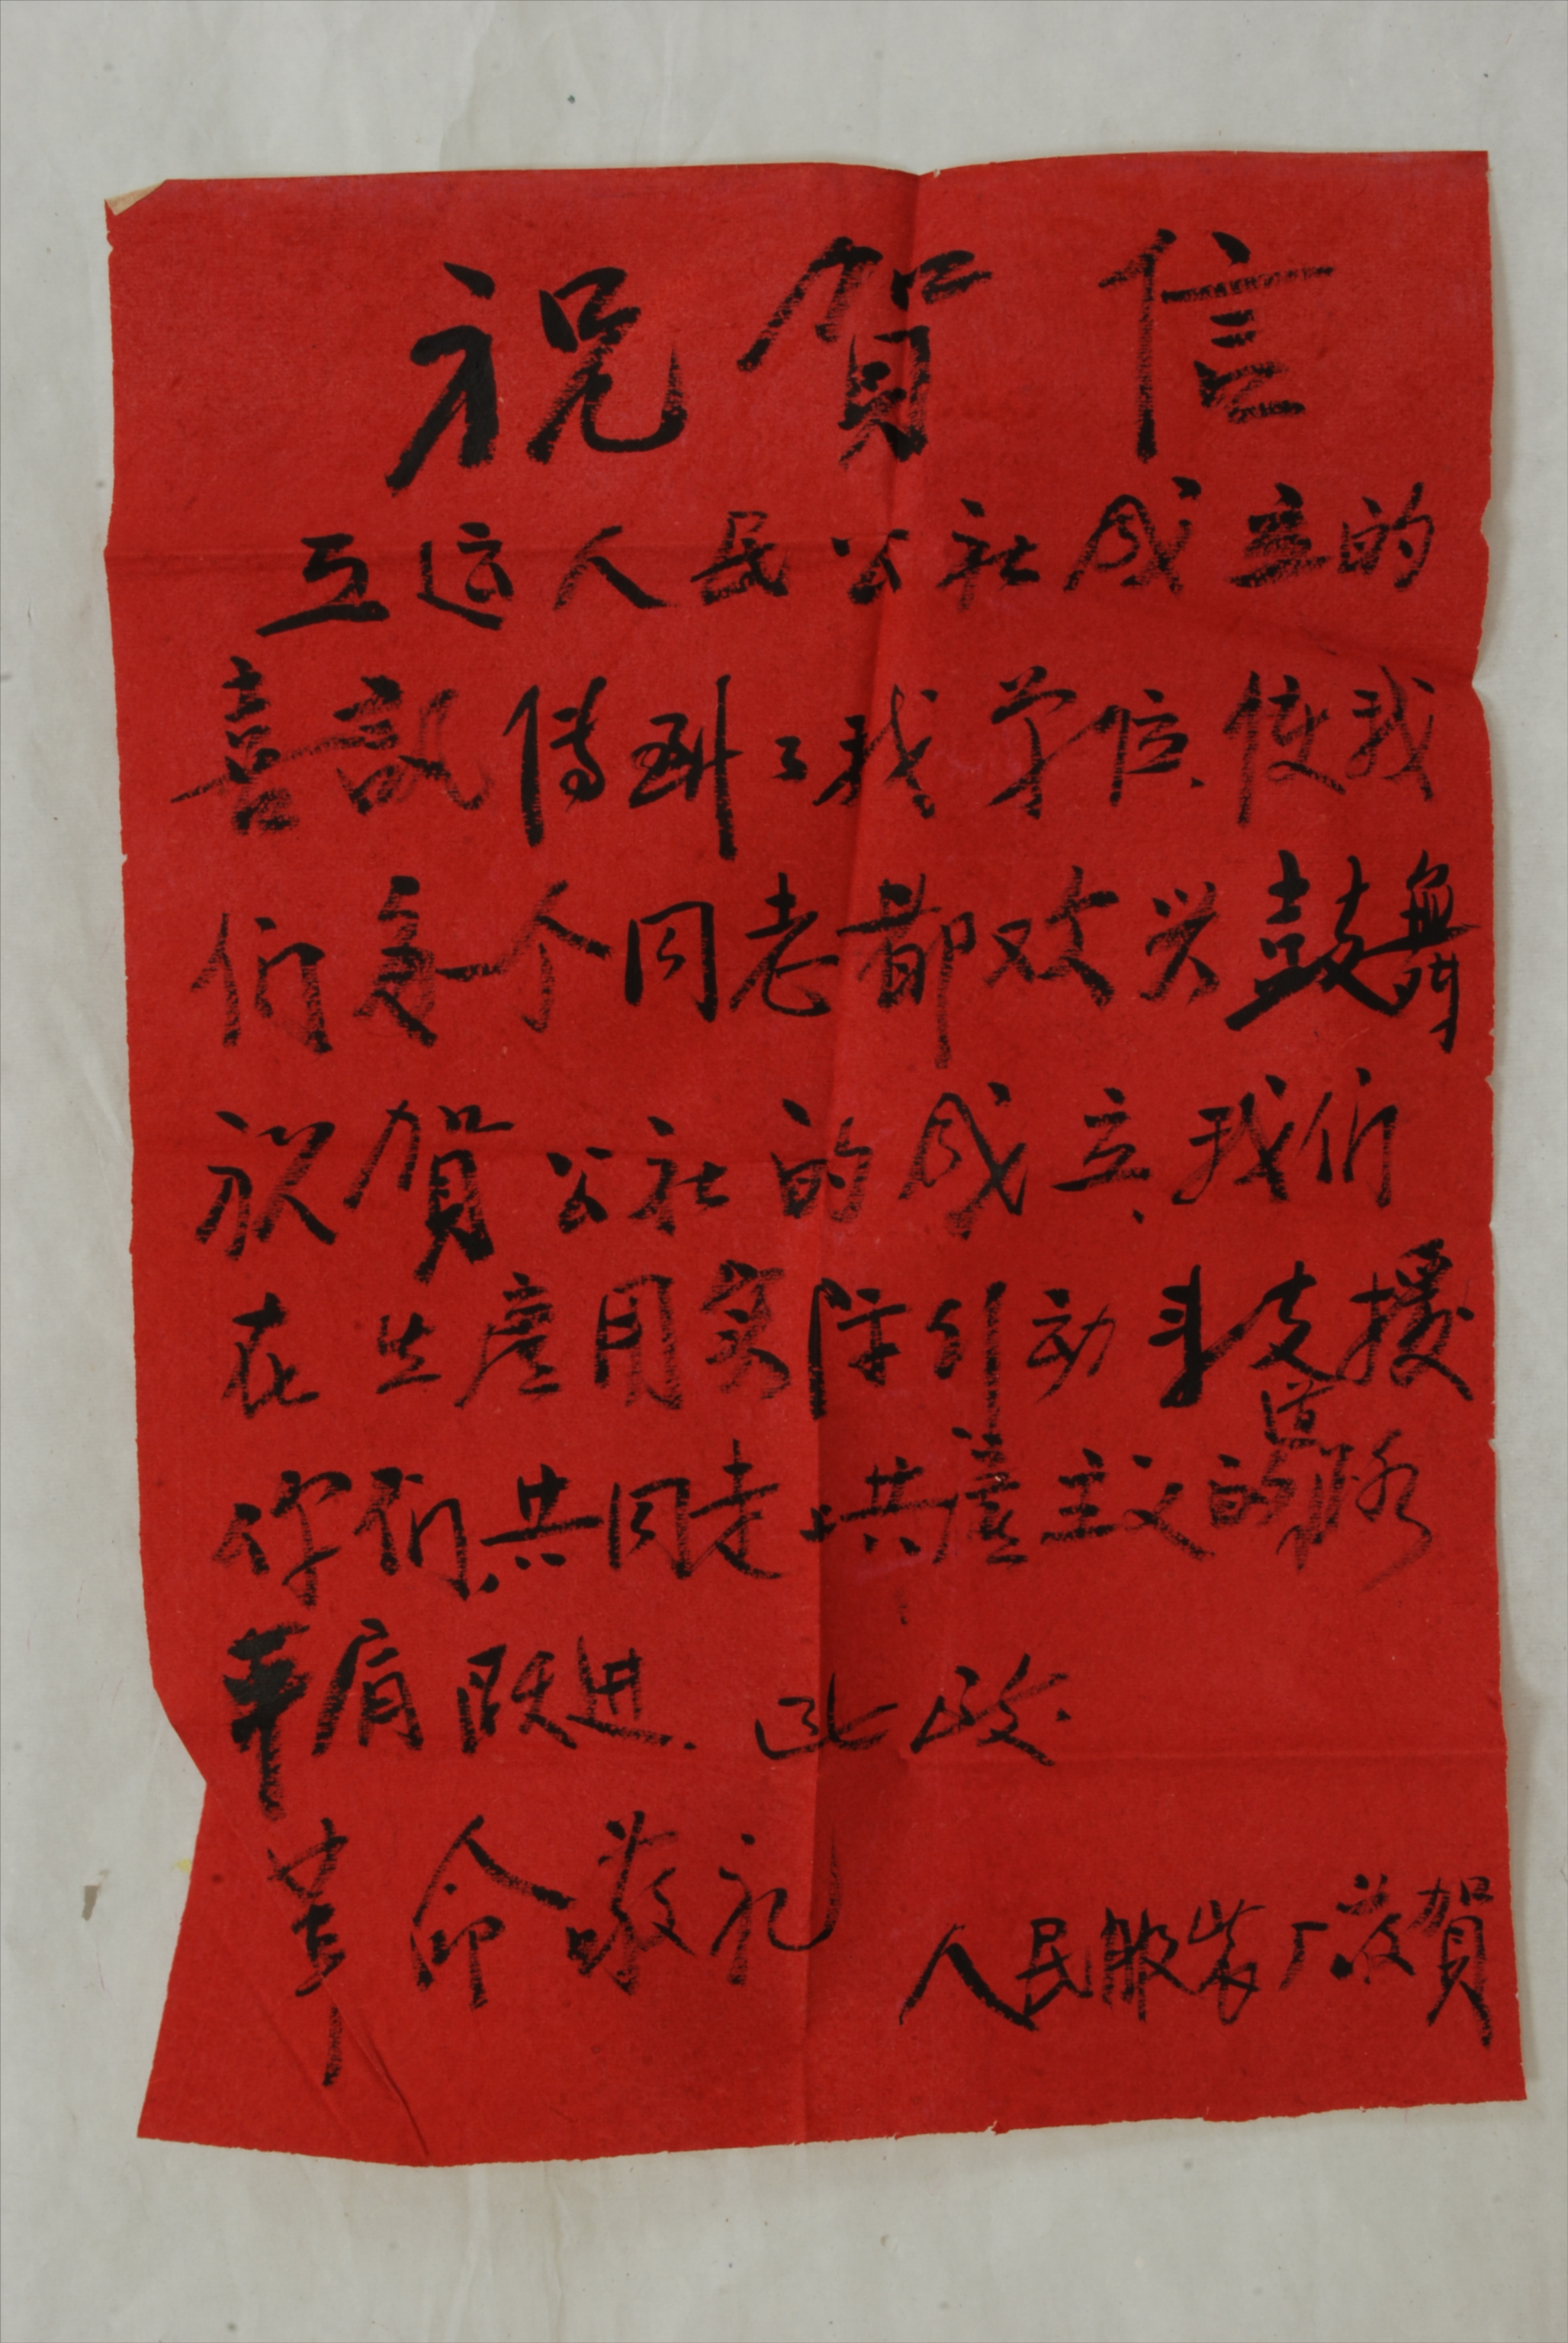 祝賀信
五运人民公社成立的
喜訊傳到了我单位、使我
们每个同志都欢兴鼓舞
祝賀公社的成立、我们
在生産用实际引动来支援
你们、共同走上共産主义的道路
平肩跃进. 此致.
革命敬礼
人民服装厂敬賀